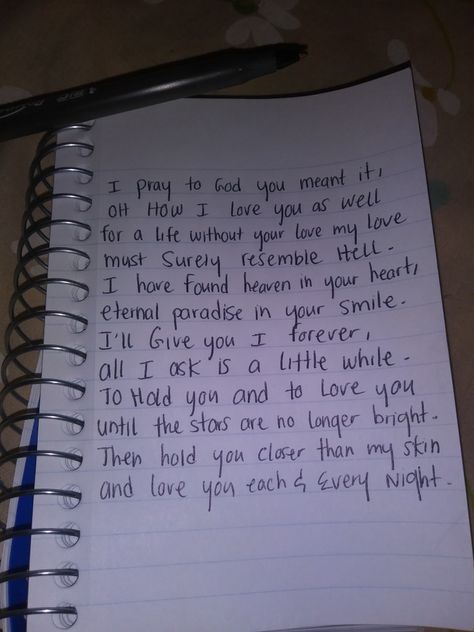 I pray to God you meant it,
OH HOW I love you as well
for a life without your love my love
must Surely resemble Hell.
I have found heaven in your heart,
eternal paradise in your smile.
I'll Give you I forever,
all I ask is a little while.
To Hold you and to Love you
until the stars are no longer bright.
Then hold you closer than my skin
and love you each & Every Night.